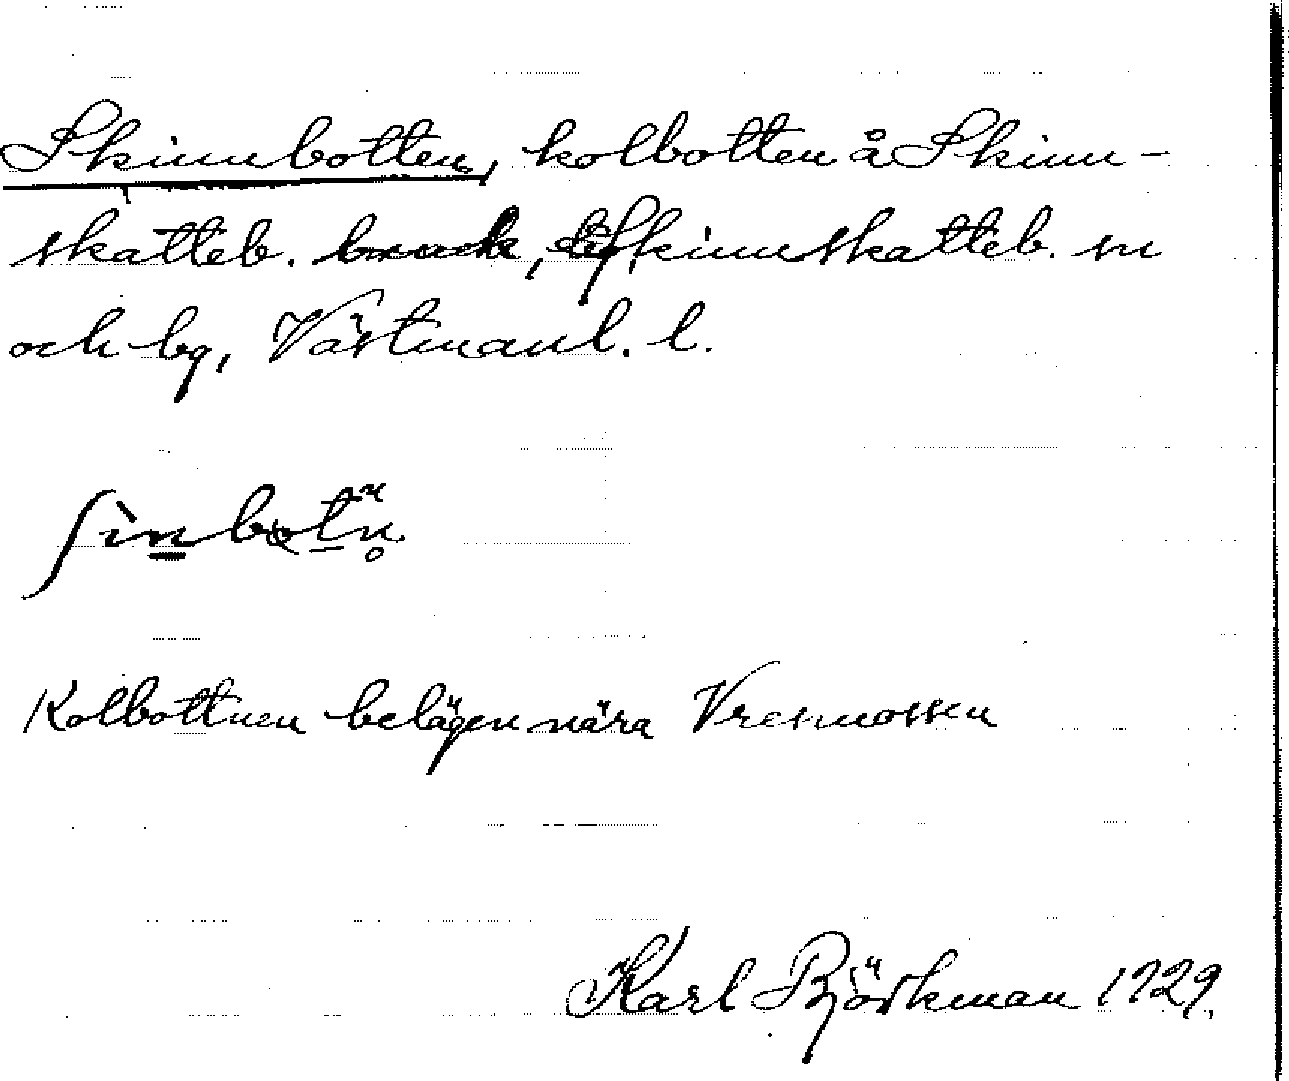 Skinnbotten, kolbotten å Skinn-
skatteb. Skinnskatteb. sn
och bg, Västmanl. l.
Kolbottnen belägen nära Vresmossen
Karl Björkman 1929.